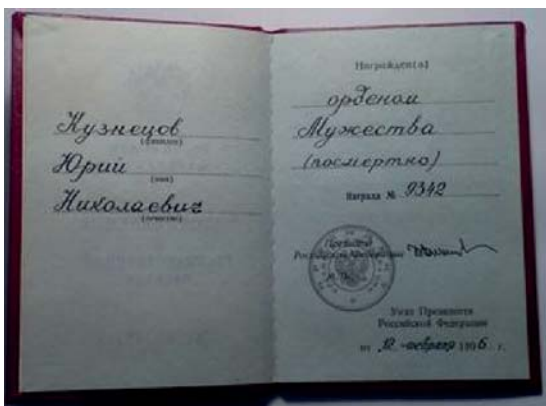 Кузнецов
(фамилия)
Юрий
(имя)
Николаевич
(отчество)
Награжден(а)
орденом
Мужества
(посмертно)
Награда № 9342
Президент
Российской Федерации
Указ Президента
Российской Федерации
от 12 февраля 1996 г.